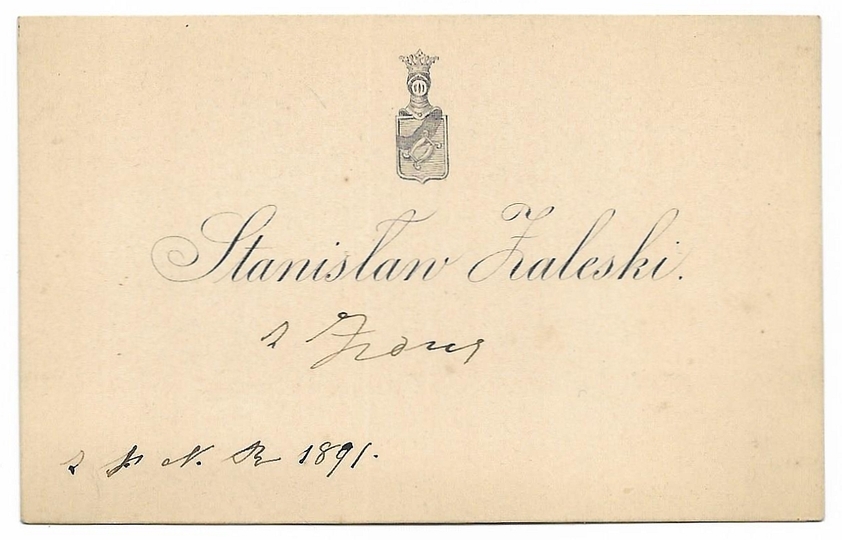 Stanisław Zaleski.
z Żoną
z p. N. R. 1891.